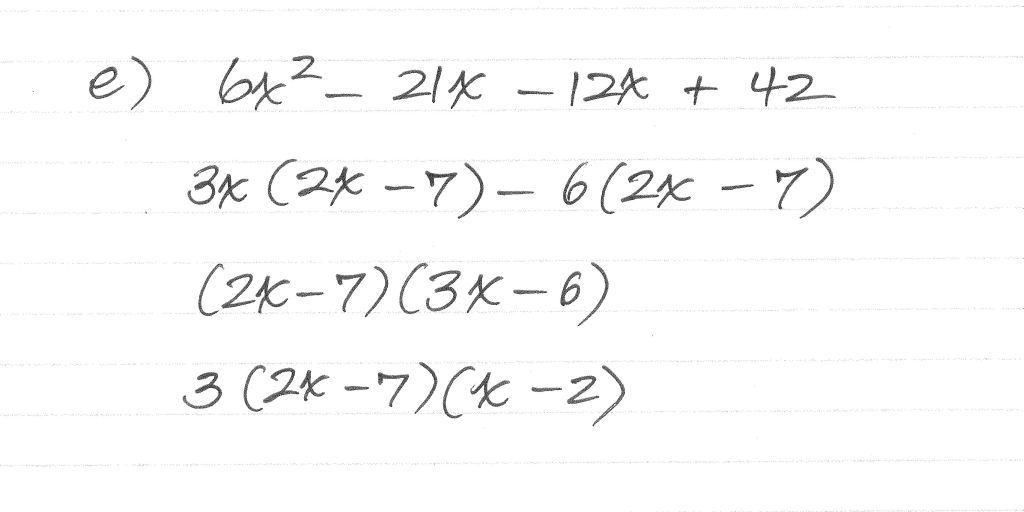 e) 6x² - 21x - 12x + 42
3x (2x - 7) - 6(2x - 7)
(2x - 7)(3x - 6)
3 (2x - 7)(x - 2)